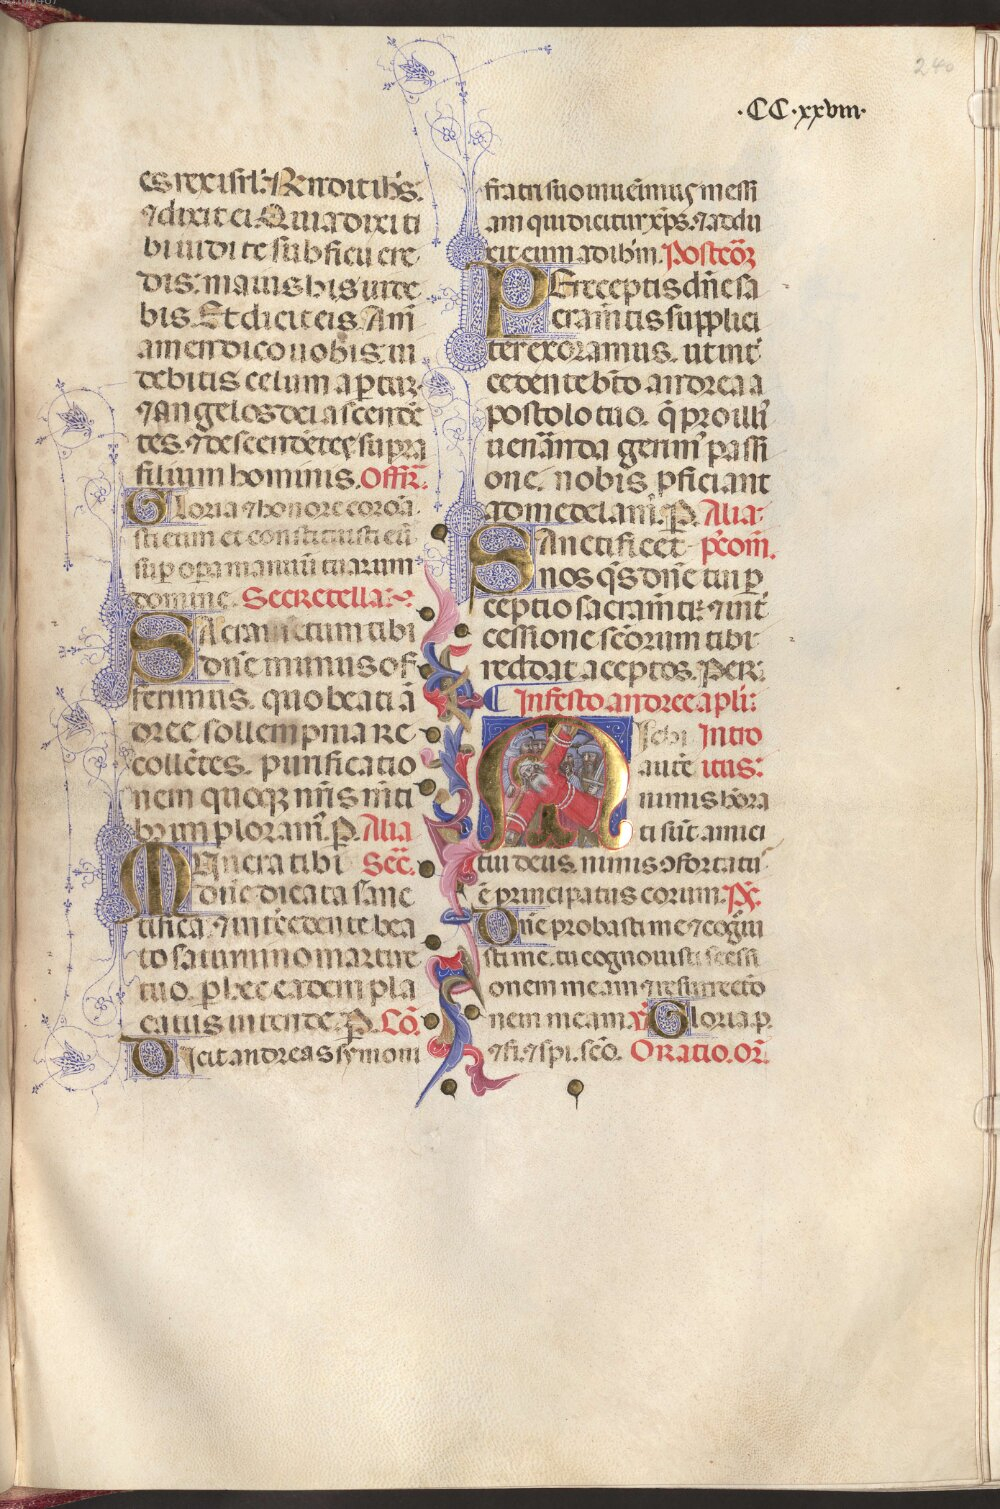 240
·CC·xxviii·
es rex isrł: Rndit ihs.
⁊ dixit ei. Quia dixi ti
bi uidi te sub ficu cre
dis: maius his uide
bis. Et dicit eis. Am̄
amen dico uobis ui
debitis celum apertur
⁊ Angelos dei ascendē
tes. ⁊ descendētes supra
filium hominis. Offr̄.
Gloria ⁊ honore coroā
sti eum et constituisti eū
sup opa manuū tuarum
domine. Secretella:~
Sacramentum tibi
dn̄e munus of
ferimus. quo beati ā
dree sollempnia re
colētes. purificatio
nem quoqꝫ nr̄is mēti
bꝫ imploram̄. P. Alia
Munera tibi Secr̄.
dn̄e dicata sanc
tifica. ⁊ intēcedente bea
to saturnino martire
tuo. p hec eadem pla
catus intende. P. Cō.
Dicit andreas symoni
fratri suo inuenimus messi
am qui dicitur xp̄s. ⁊ addu
xit eum ad ihm̄. Postcōꝫ
Perceptis dn̄e sa
cramētis supplici
ter exoramus. ut int̄
cedente bt̄o andrea a
postolo tuo. q̄ pro illi
uenāanda gerim̄ passi
one. nobis pficiant
ad medelam. P. Alia
Sanctificet p̄com̄.
nos q̄s dn̄e tui p
ceptio sacramti: ⁊ int̄
cessione sc̄orum tibi
reddat aceptos. Per.
In festo andree apl̄i:
Michi Intro
autē itus:
nimis hōra
ti sūt amici
tui deus. nimis ɔfortatū
ē principatus eorum. Ps.
Dn̄e probasti me ⁊ cogui
sti me. tu cognouisti sessi
onem meam ⁊ resurrectō
nem meam. Gloria p.
⁊ fi. ⁊ spi. scō. Oratio. Or̄.